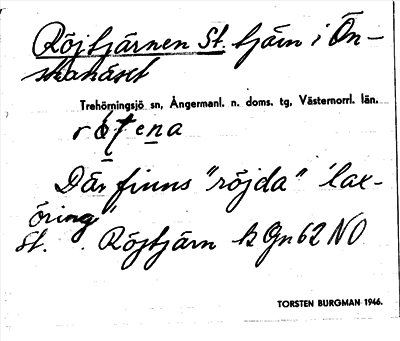 Röjtjärnen St. tjärn i Ön-
skanäset
Trehörningsjö sn, Ångermanl. n. doms. tg, Västernorrl. län.
Där finns "röjda" 'lax-
öring"
St. . Röjtjärn b Gn 62 NO
TORSTEN BURGMAN 1946.